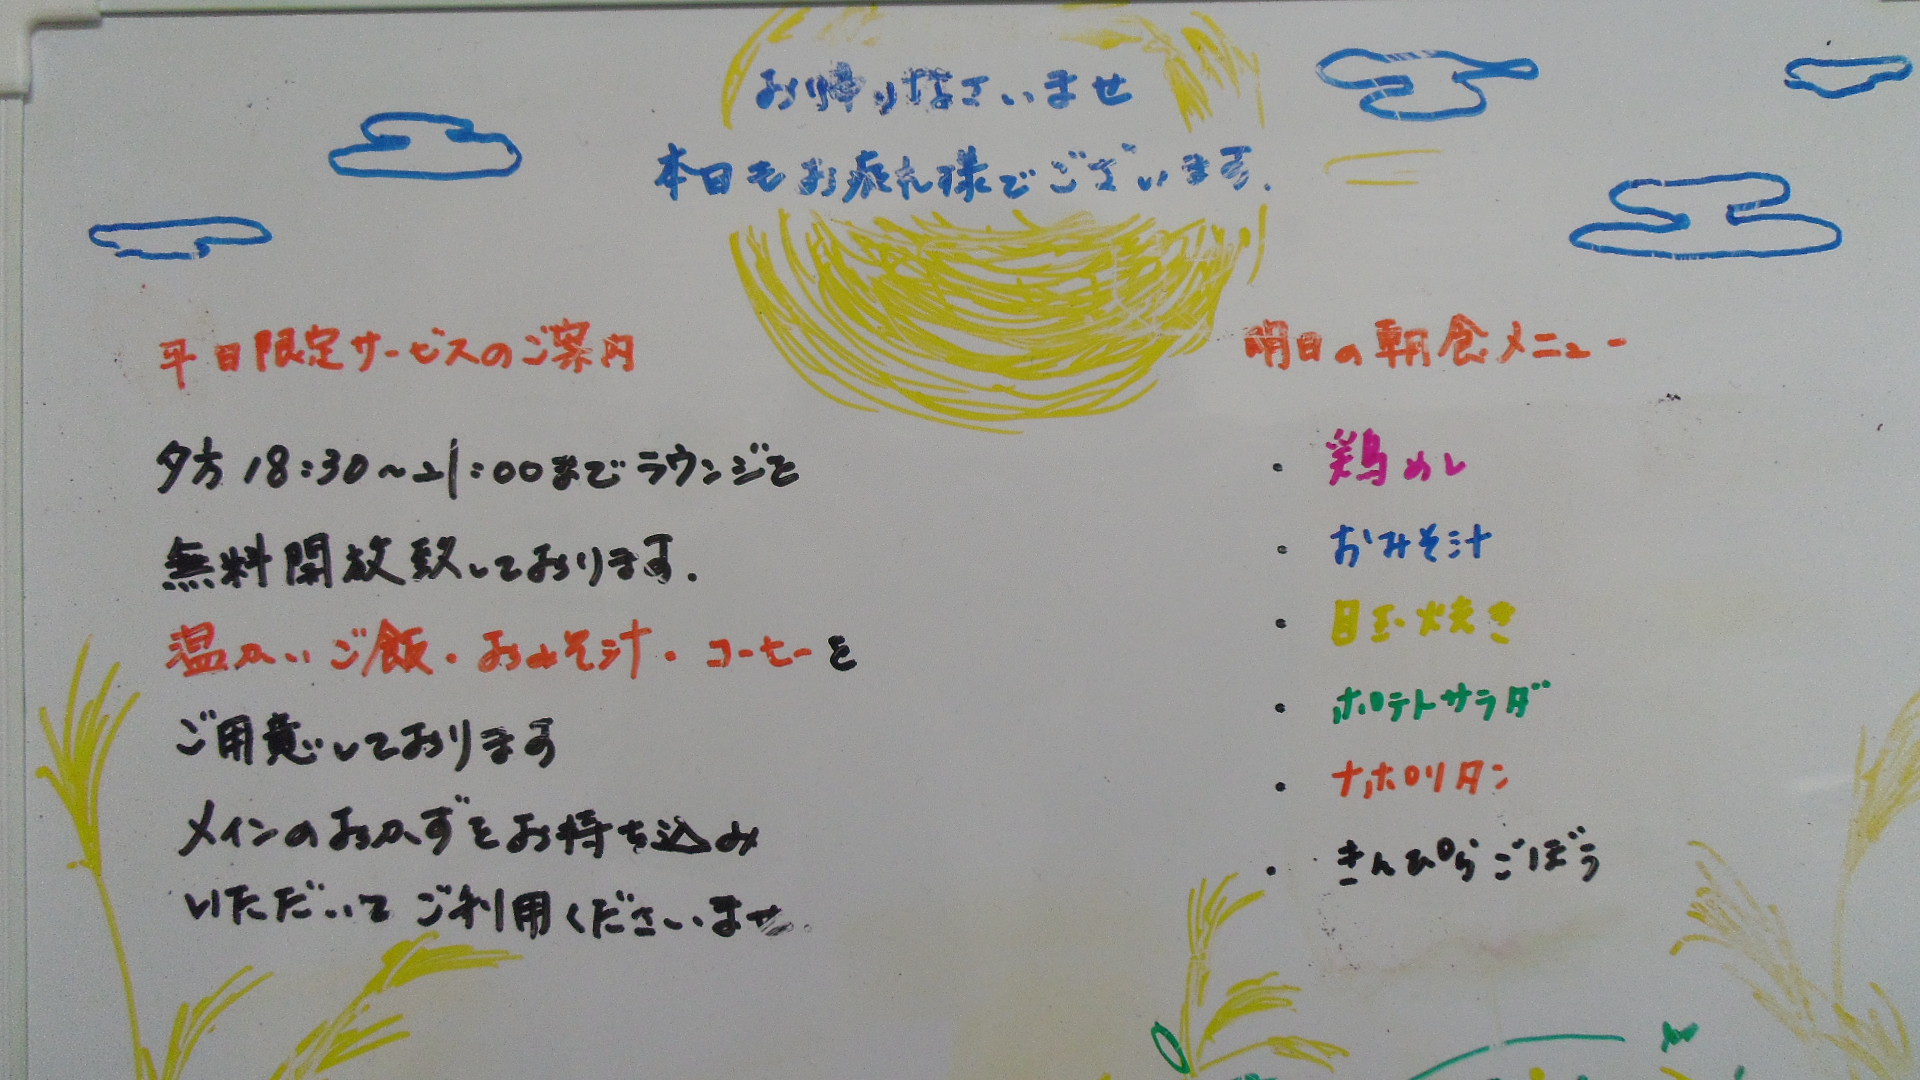 お帰りなさいませ
本日もお疲れ様でございます.
平日限定サービスのご案内
夕方18:30~21:00までラウンジを
無料開放致しております.
温かいご飯・おみそ汁・コーヒーを
ご用意しております
メインのおかずをお持ち込み
いただいてご利用くださいませ.
明日の朝食メニュー
・鶏めし
・おみそ汁
・目玉焼き
・ポテトサラダ
・ナポリタン
・きんぴらごぼう